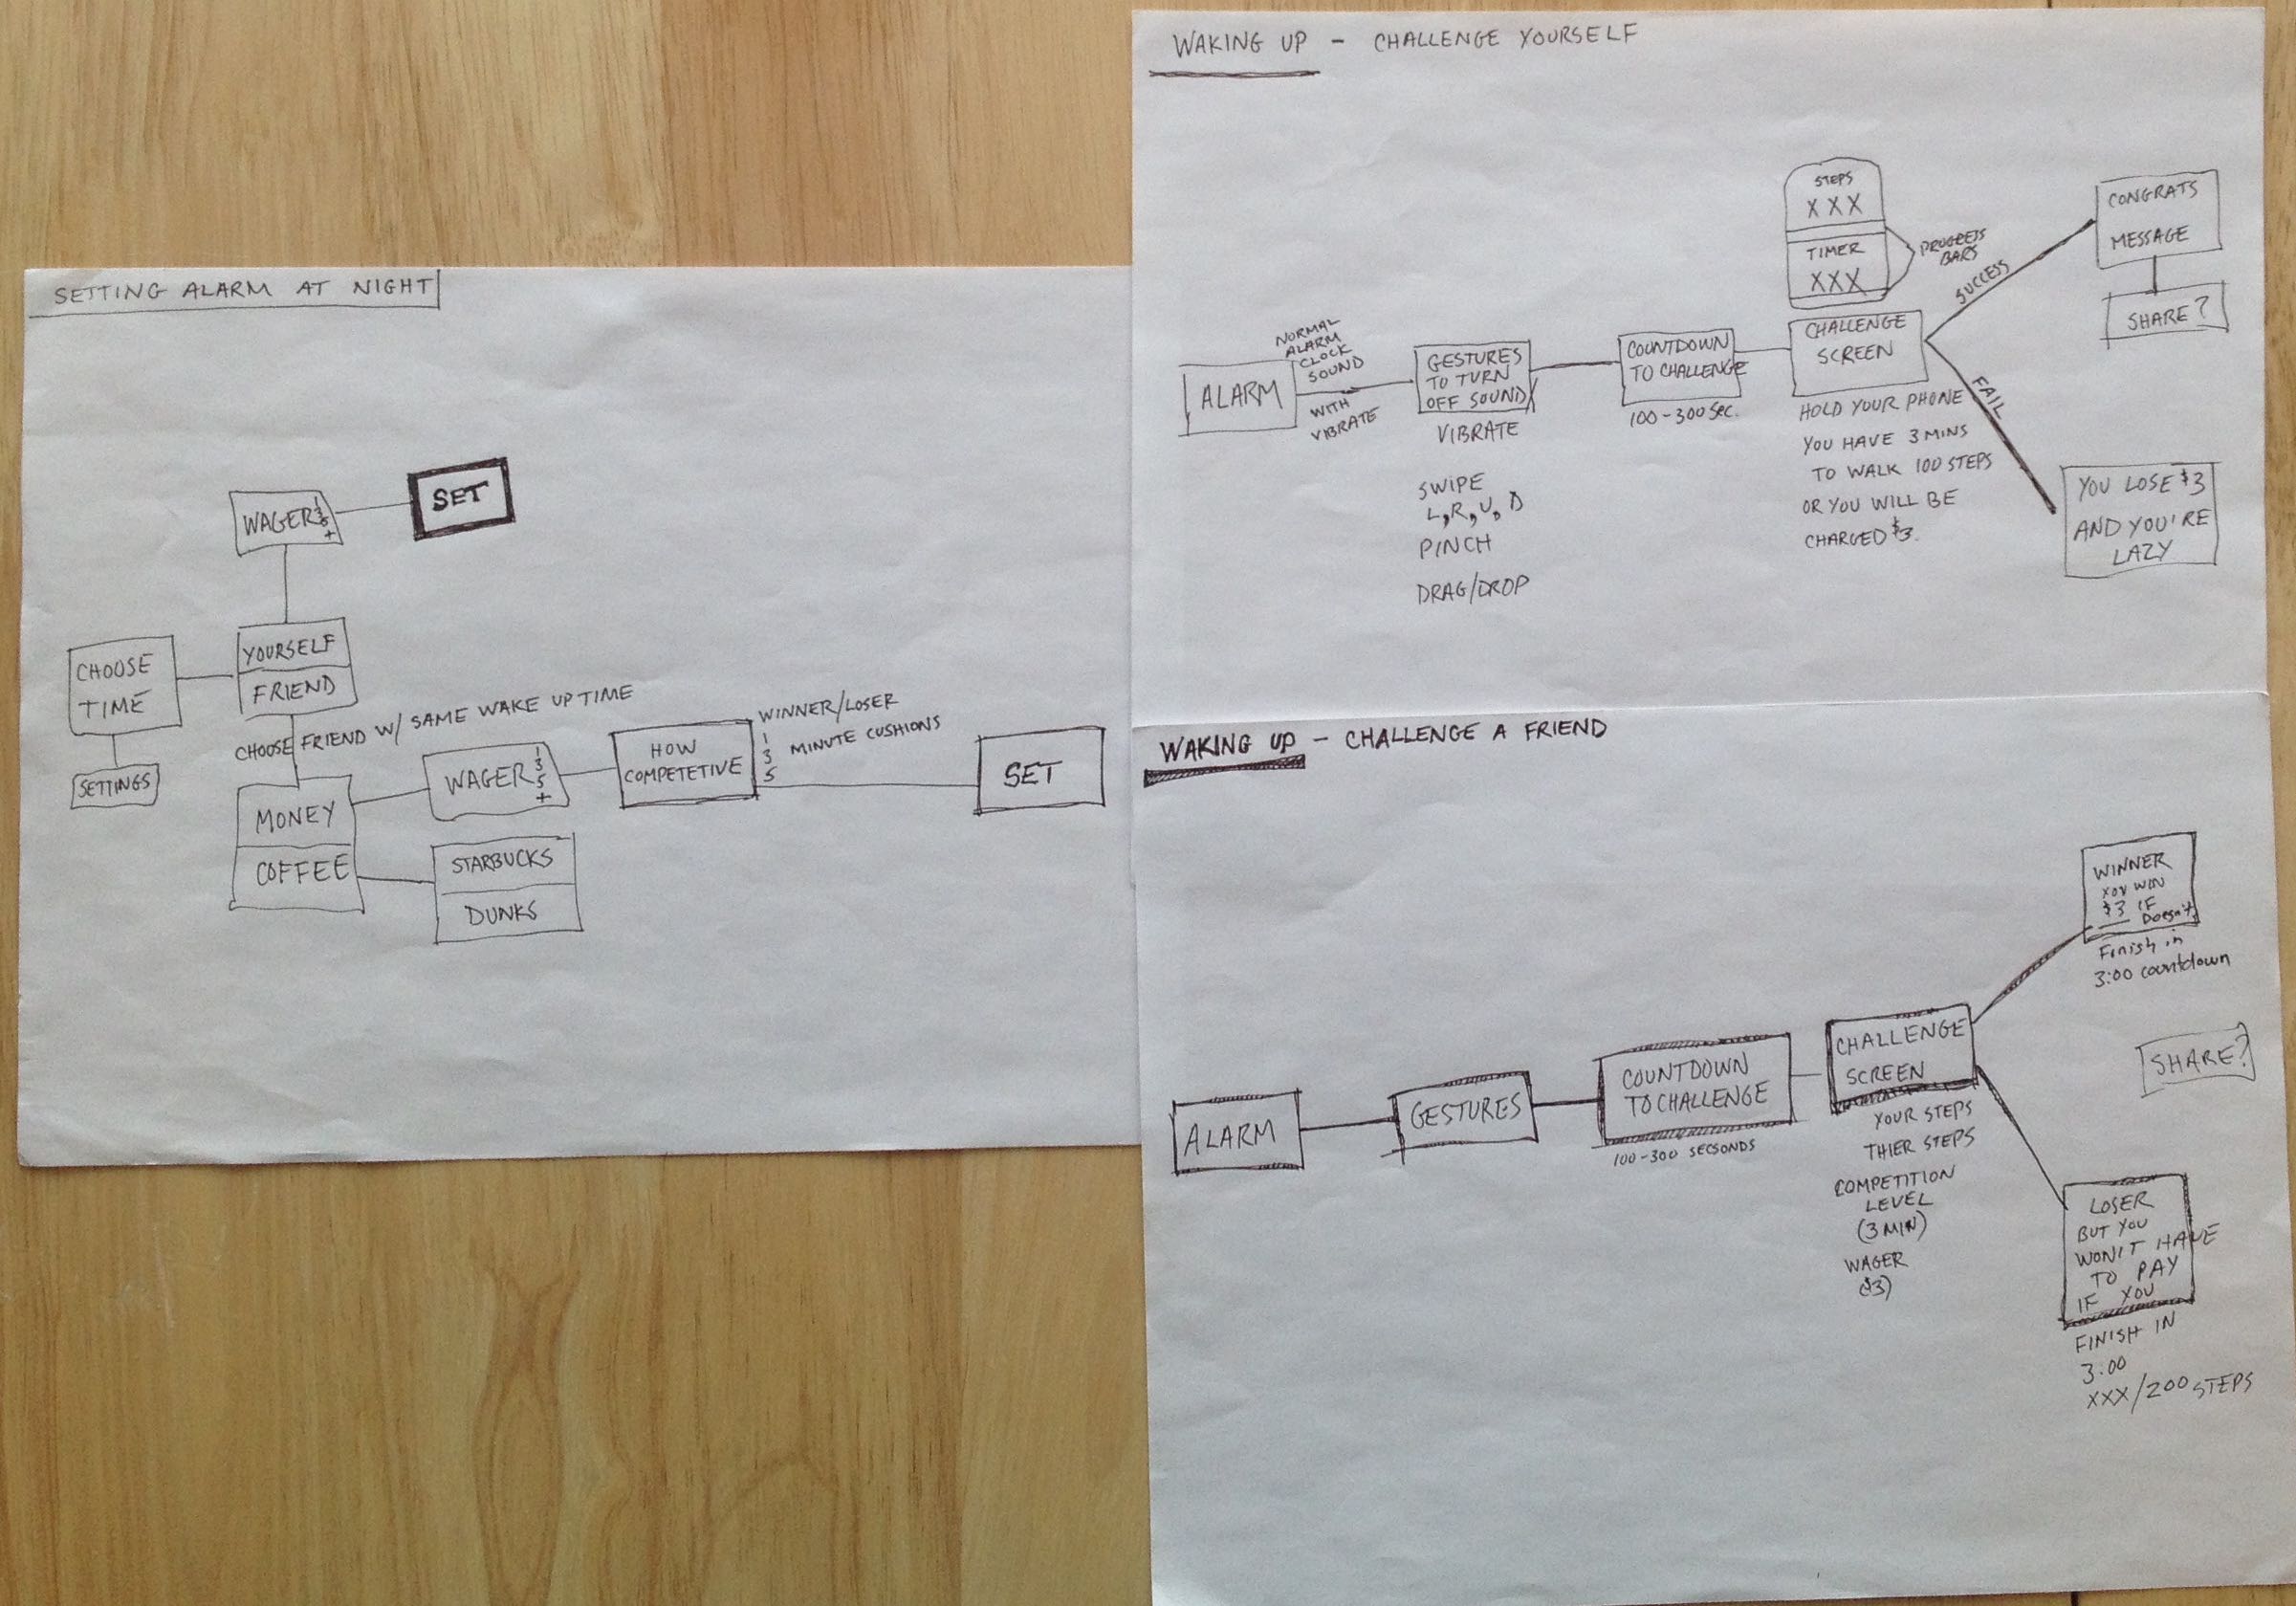 SETTING ALARM AT NIGHT
WAGER 1
3
5
+
SET
CHOOSE
TIME
SETTINGS
YOURSELF
FRIEND
CHOOSE FRIEND W/ SAME WAKE UP TIME
MONEY
COFFEE
WAGER 1
3
5
+
STARBUCKS
DUNKS
HOW
COMPETETIVE
WINNER/LOSER
1
3 MINUTE CUSHIONS
5
SET
WAKING UP - CHALLENGE YOURSELF
ALARM
NORMAL
ALARM
CLOCK
SOUND
WITH
VIBRATE
GESTURES
TO TURN
OFF SOUND/
VIBRATE
SWIPE
L, R, U, D
PINCH
DRAG/DROP
COUNTDOWN
TO CHALLENGE
100-300 SEC.
STEPS
XXX
TIMER
XXX
PROGRESS
BARS
CHALLENGE
SCREEN
HOLD YOUR PHONE
YOU HAVE 3 MINS
TO WALK 100 STEPS
OR YOU WILL BE
CHARGED $3.
SUCCESS
FAIL
CONGRATS
MESSAGE
SHARE?
YOU LOSE $3
AND YOU'RE
LAZY
WAKING UP - CHALLENGE A FRIEND
ALARM
GESTURES
COUNTDOWN
TO CHALLENGE
100-300 SECSONDS
CHALLENGE
SCREEN
YOUR STEPS
THIER STEPS
COMPETITION
LEVEL
(3 MIN)
WAGER
($3)
WINNER
YOU WIN
$3 IF
___ Doesn't
Finish in
3:00 countdown
SHARE?
LOSER
BUT YOU
WON'T HAVE
TO PAY
IF YOU
FINISH IN
3:00
XXX/200 STEPS